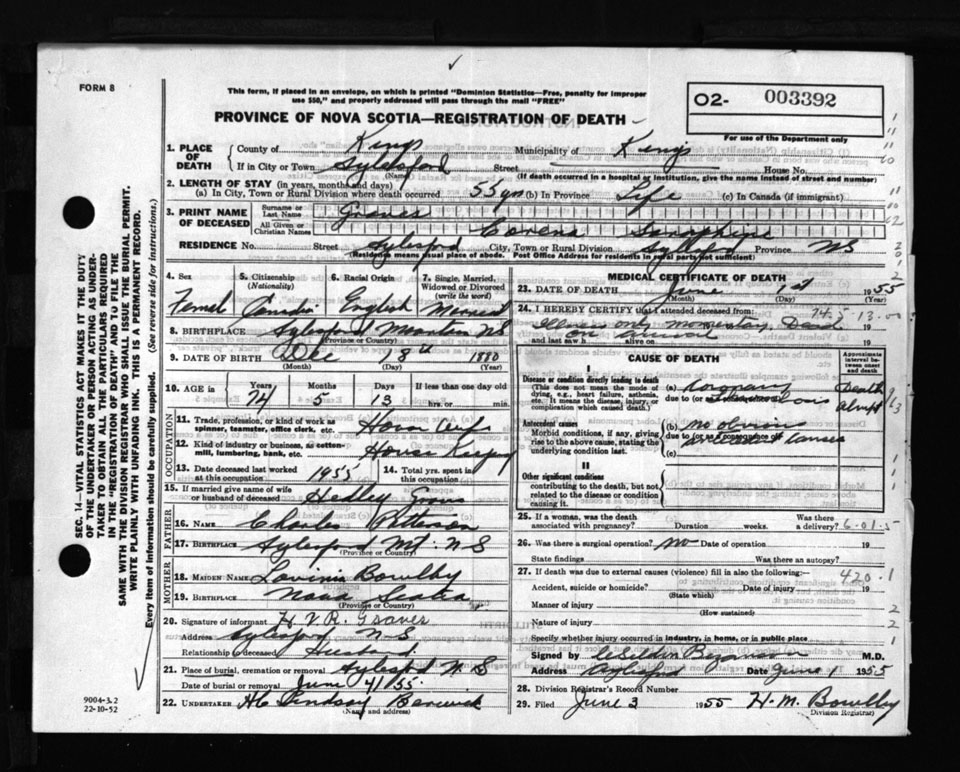 FORM 8
This form, if placed in an envelope, on which is printed "Dominion Statistics—Free, penalty for improper
use $50," and properly addressed will pass through the mail "FREE"
O2- 003392
For use of the Department only
PROVINCE OF NOVA SCOTIA—REGISTRATION OF DEATH
1. PLACE OF DEATH
County of Kings Municipality of Kings
If in City or Town Aylesford Street House No.
(Name) (If death occurred in a hospital or institution, give the name instead of street and number)
2. LENGTH OF STAY (in years, months and days)
(a) In City, Town or Rural Division where death occurred 55 yrs (b) In Province Life (c) In Canada (if immigrant)
3. PRINT NAME OF DECEASED
Surname or Last Name Graves
All Given or Christian Names Corena Seraphine
RESIDENCE No. Street Aylesford City, Town or Rural Division Aylesford Province NS
(Residence means usual place of abode. Post Office Address for residents in rural parts not sufficient)
4. Sex
5. Citizenship (Nationality)
6. Racial Origin
7. Single, Married, Widowed or Divorced (write the word)
Femal Canadian English Married
8. BIRTHPLACE Aylesford Mountain NS
(Province or Country)
9. DATE OF BIRTH Dec 18th 1880
(Month) (Day) (Year)
10. AGE in Years Months Days If less than one day old
74 5 13 hrs. or min.
OCCUPATION
11. Trade, profession, or kind of work as spinner, teamster, office clerk, etc. House wife
12. Kind of industry or business, as cotton-mill, lumbering, bank, etc. House Keeping
13. Date deceased last worked at this occupation 1955
14. Total yrs. spent in this occupation
15. If married give name of wife or husband of deceased Hedley Graves
FATHER
16. NAME Charles Patterson
17. BIRTHPLACE Aylesford Mt. NS
(Province or Country)
MOTHER
18. MAIDEN NAME Lavinia Bowlby
19. BIRTHPLACE Nova Scotia
(Province or Country)
20. Signature of informant H. V. R. Graves
Address Aylesford N-S
Relationship to deceased Husband
21. Place of burial, cremation or removal Aylesford N. S
Date of burial or removal June 4/55.
22. UNDERTAKER HC Lindsay Berwick
(Name and address)
MEDICAL CERTIFICATE OF DEATH
23. DATE OF DEATH June 1st 1955
(Month) (Day) (Year)
74.5-13.00
24. I HEREBY CERTIFY that I attended deceased from:
Illness only momentary Dead
on arrival
and last saw h alive on
CAUSE OF DEATH
Approximate interval between onset and death
Disease or condition directly leading to death
(This does not mean the mode of dying, e.g., heart failure, asthenia, etc. It means the disease, injury, or complication which caused death.)
(a) Coronary
due to (or Thrombosis
Death Abrupt
Antecedent causes
Morbid conditions, if any, giving rise to the above cause, stating the underlying condition last.
(b) no obvious
due to (or as a consequence of) causes
(c)
II
Other significant conditions
contributing to the death, but not related to the disease or condition causing it.
25. If a woman, was the death associated with pregnancy? Duration weeks. Was there a delivery? 6-01-5
26. Was there a surgical operation? no Date of operation 19
State findings Was there an autopsy?
27. If death was due to external causes (violence) fill in also the following:—
420.1
Accident, suicide or homicide? Date of injury 19
(State which)
Manner of injury
(How sustained)
Nature of injury
Specify whether injury occurred in industry, in home, or in public place
Signed by M.D.
Address Aylesford Date June 1 1955
28. Division Registrar's Record Number
29. Filed June 3 1955 H. M. Bowlby
Division Registrar)
9004-3.2
22-10-52
SEC. 14—VITAL STATISTICS ACT MAKES IT THE DUTY
OF THE UNDERTAKER OR PERSON ACTING AS UNDER-
TAKER TO OBTAIN ALL THE PARTICULARS REQUIRED
IN THE "REGISTRATION OF DEATH" AND TO FILE THE
SAME WITH THE DIVISION REGISTRAR WHO SHALL ISSUE THE BURIAL PERMIT.
WRITE PLAINLY WITH UNFADING INK. THIS IS A PERMANENT RECORD.
Every item of information should be carefully supplied. (See reverse side for instructions.)